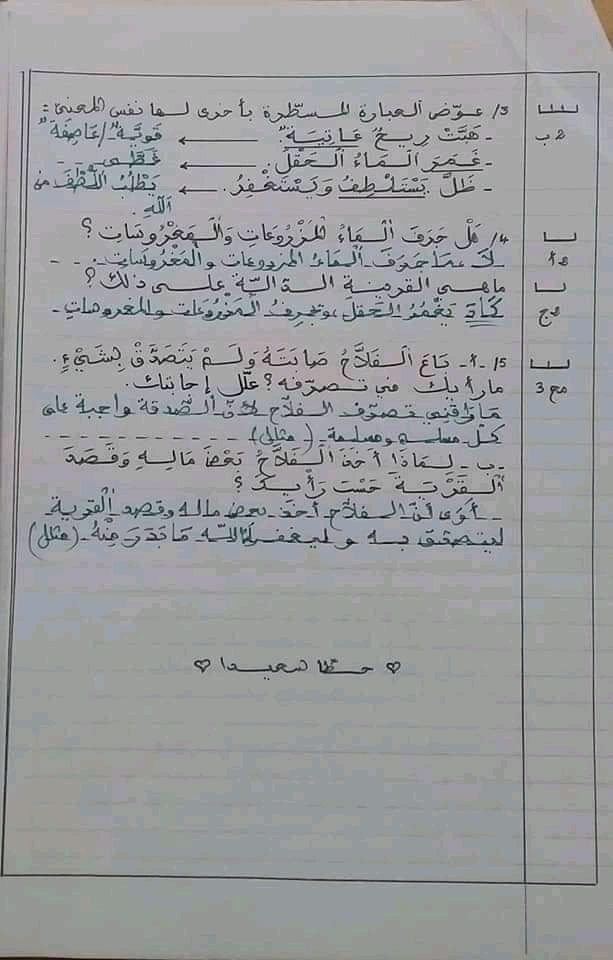 3/ عوّض العبارة المسطّرة بأخرى لها نفس المعنى:
2ب
- هَبَّتْ رِيحٌ عَاتِيَةٌ. ← قويّةٌ / عَاصِفَةٌ
- غَمَرَ الْمَاءُ الْحَقْلَ. ← غَطَّى
- ظَلَّ يَسْتَلْطِفُ وَيَسْتَغْفِرُ. ← يَطْلُبُ اللُّطْفَ من
اللّهِ.
4/ هَلْ جَرَفَ الْمَاءُ الْمَزْرُوعَاتِ وَالْمَغْرُوسَاتِ؟
لَا مَا جَرَفَ الْمَاءُ المزروعات والمَغْروسات.
ما هي القرينة الدّالّة على ذلك؟
2ج
كَادَ يَغْمُرُ الحَقْلَ وَيجرِفُ المَزْرُوعَاتِ والمغروسات.
5/ أ- بَاعَ الْفَلَّاحُ صَابَتَهُ وَلَمْ يَتَصَدَّقْ بِشَيْءٍ.
مع3
ما رأيك في تصرّفه؟ علّل إجابتك.
مَا وَافقني تصرّف الفلّاح لأنّ الصّدقة واجبة على
كلّ مسلم ومسلمة. (مثال)
ب- لِمَاذَا أَخَذَ الْفَلَّاحُ بَعْضَ مَالِهِ وَقَصَدَ
الْقَرْيَةَ حَسْبَ رَأْيِكَ؟
أرى أنّ الفلّاح أخذ بعض ماله وقصد القرية
ليتصدّق به وليغفر له اللّه مَا بَدَرَ مِنْهُ. (مثال)
♡ حظّا سعيدا ♡